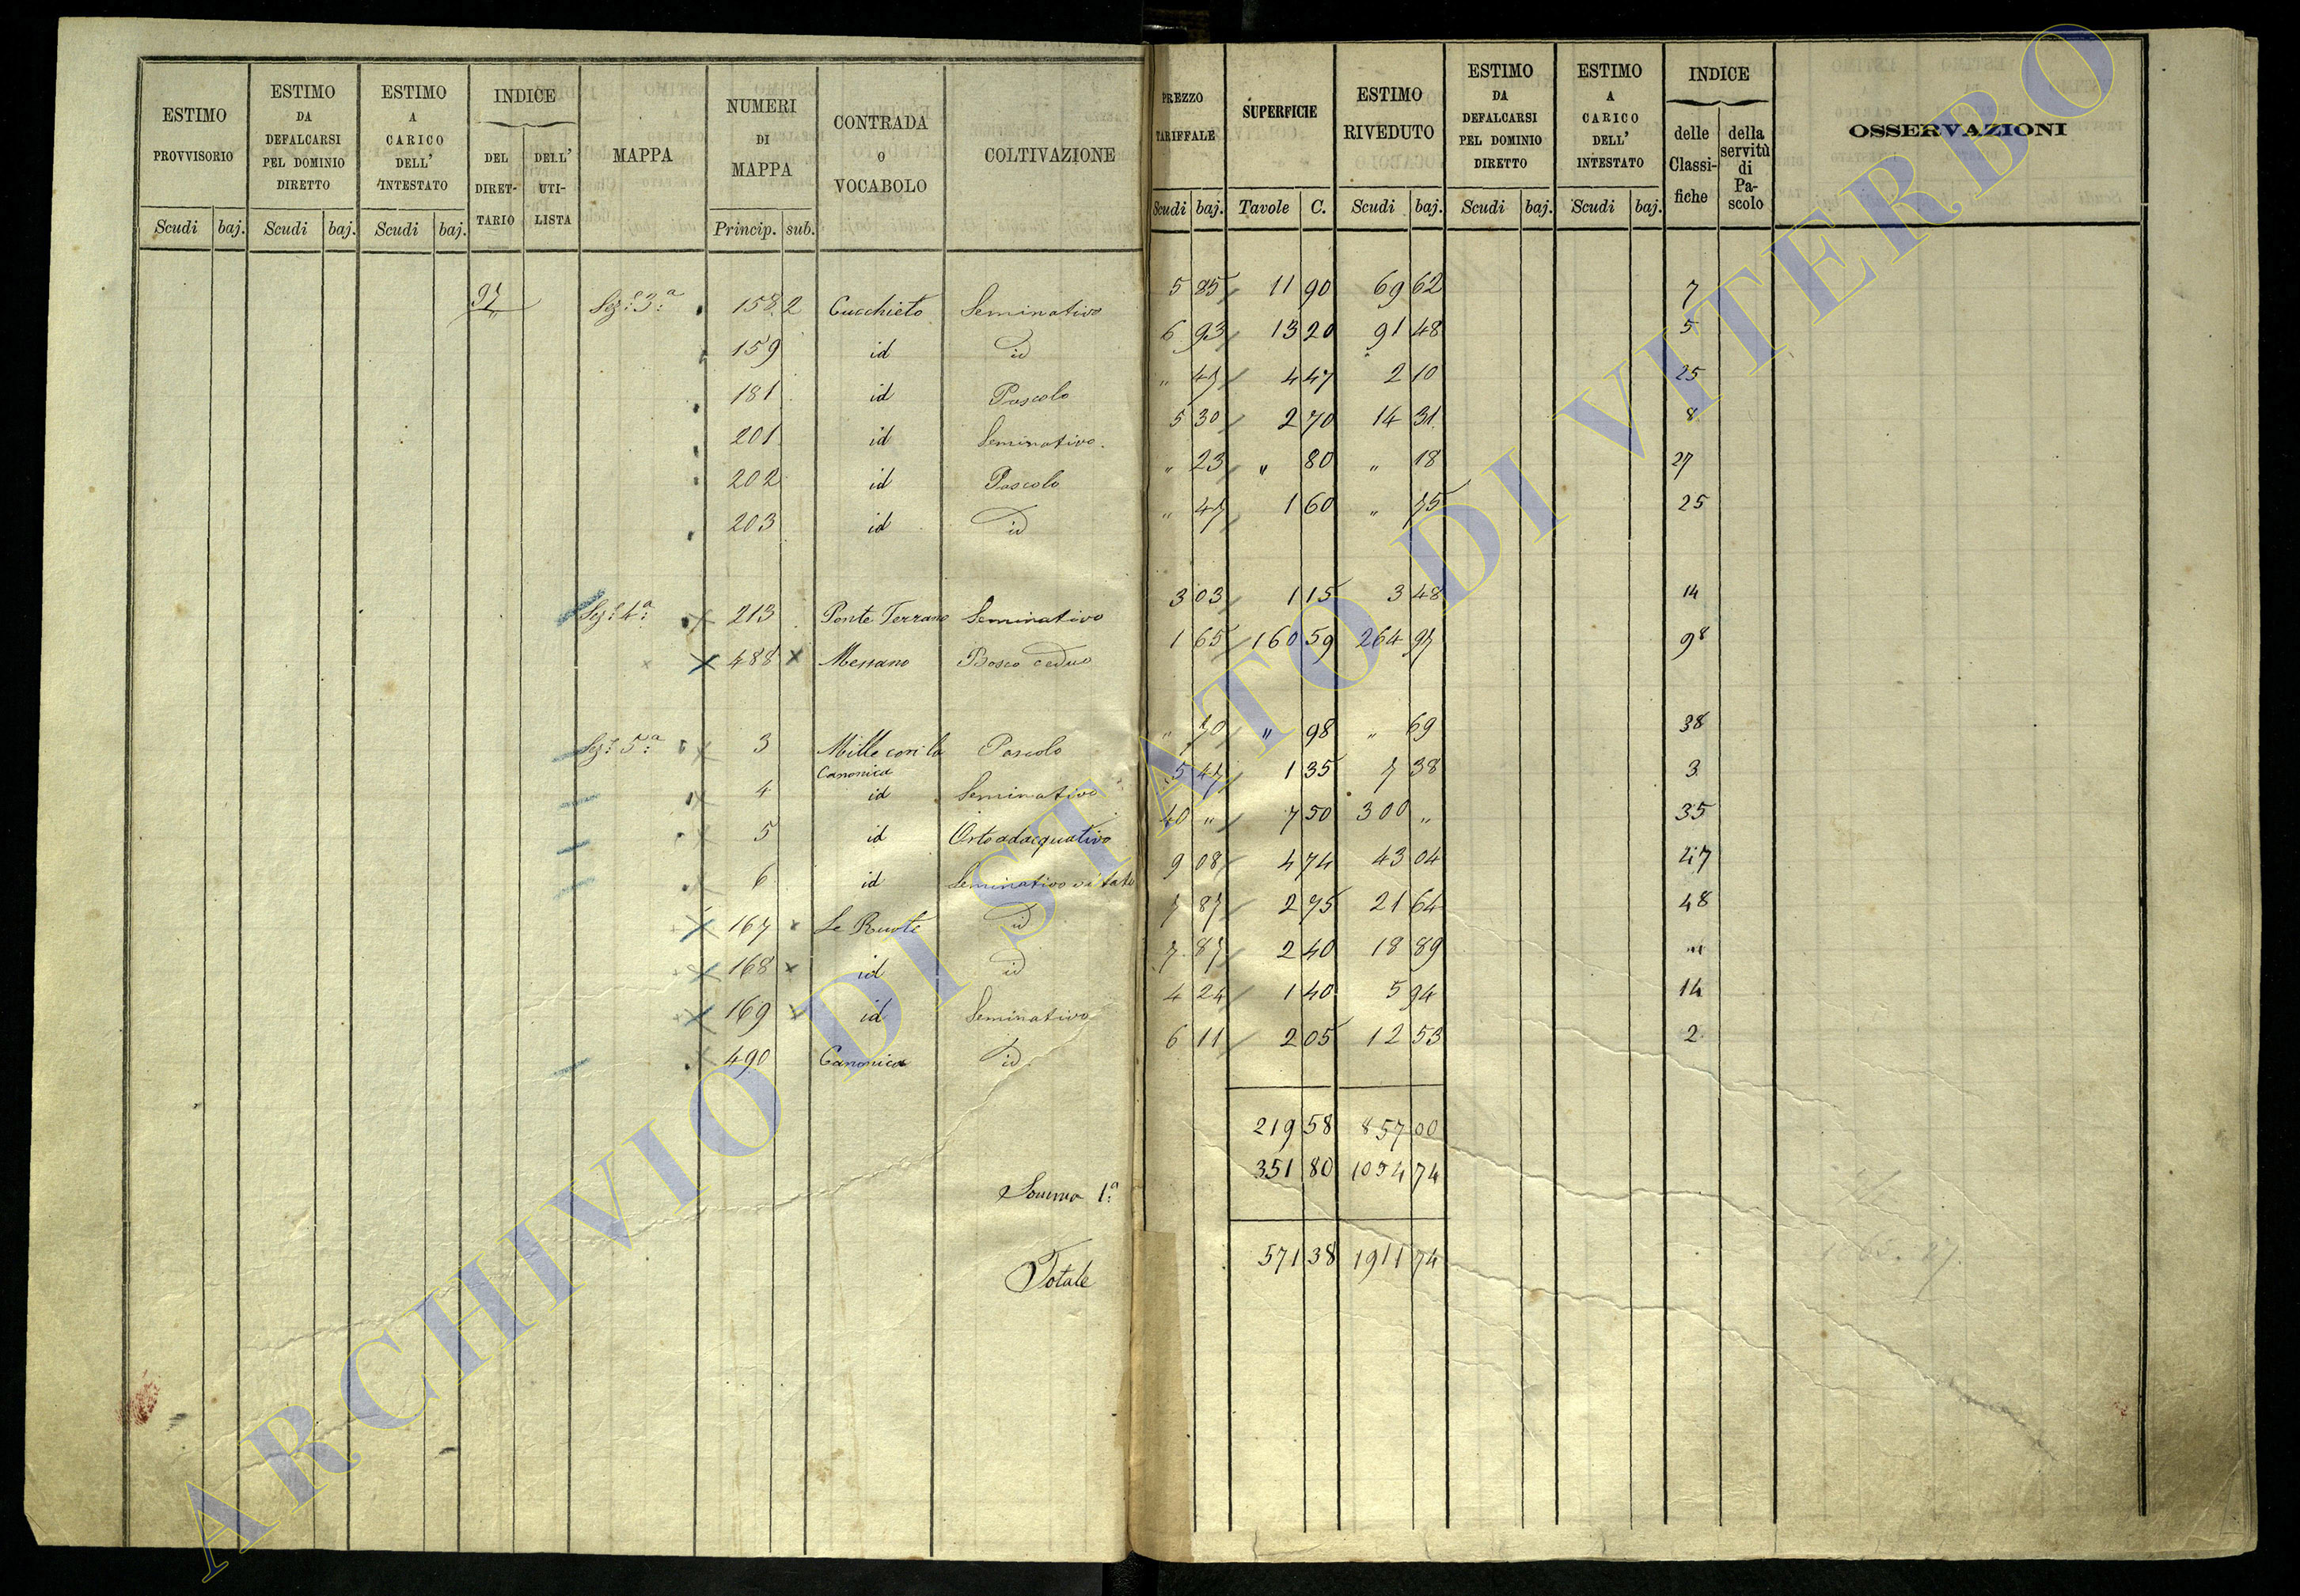 ESTIMO PROVVISORIO
Scudi baj.
ESTIMO DA DEFALCARSI PEL DOMINIO DIRETTO
Scudi baj.
ESTIMO A CARICO DELL' INTESTATO
Scudi baj.
INDICE
DEL DIRET-TARIO
DELL' UTI-LISTA
MAPPA
NUMERI DI MAPPA
Princip. sub.
CONTRADA O VOCABOLO
COLTIVAZIONE
PREZZO TARIFFALE
Scudi baj.
SUPERFICIE
Tavole C.
ESTIMO RIVEDUTO
Scudi baj.
ESTIMO DA DEFALCARSI PEL DOMINIO DIRETTO
Scudi baj.
ESTIMO A CARICO DELL' INTESTATO
Scudi baj.
INDICE
delle Classi-fiche
della servitù di Pa-scolo
OSSERVAZIONI
97 Sez: 3ª 158 2 Cucchieto Seminativo 5 85 11 90 69 62 7
159 id id 6 93 13 20 91 48 5
181 id Pascolo " 47 4 47 2 10 25
201 id Seminativo 5 30 2 70 14 31 8
202 id Pascolo " 23 " 80 " 18 27
203 id id " 47 1 60 " 75 25
Sez: 4ª 213 Ponte Terrano Seminativo 3 03 1 15 3 48 14
488 Messano Bosco ceduo 1 65 160 59 264 97 98
Sez: 5ª 3 Mille con la Canonica Pascolo " 70 " 98 " 69 38
4 id Seminativo 5 47 1 35 7 38 3
5 id Orto adacquativo 40 " 7 50 300 " 35
6 id Seminativo vitato 9 08 4 74 43 04 47
167 Le Ruote id 7 87 2 75 21 64 48
168 id id 7 87 2 40 18 89
169 id Seminativo 4 24 1 40 5 94 14
490 Canonica id 6 11 2 05 12 53 2
219 58 857 00
Somma 1ª 351 80 1054 74
Totale 571 38 1911 74
ARCHIVIO DI STATO DI VITERBO